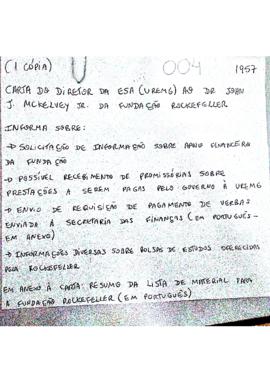 (1 CÓPIA) 004 1957
CARTA DO DIRETOR DA ESA (UREMG) AO DR JOHN
J. MCKELVEY JR. DA FUNDAÇÃO ROCKEFELLER
INFORMA SOBRE:
→ SOLICITAÇÃO DE INFORMAÇÃO SOBRE APOIO FINANCEIRO
DA FUNDAÇÃO
→ POSSÍVEL RECEBIMENTO DE PROMISSÓRIAS SOBRE
PRESTAÇÕES A SEREM PAGAS PELO GOVERNO À UREMG
→ ENVIO DE REQUISIÇÃO DE PAGAMENTO DE VERBAS
ENVIADA À SECRETARIA DAS FINANÇAS (EM PORTUGUÊS-
EM ANEXO)
→ INFORMAÇÕES DIVERSAS SOBRE BOLSAS DE ESTUDOS OFERECIDAS
PELA ROCKEFELLER
EM ANEXO À CARTA: RESUMO DA LISTA DE MATERIAL PARA
A FUNDAÇÃO ROCKEFELLER (EM PORTUGUÊS)